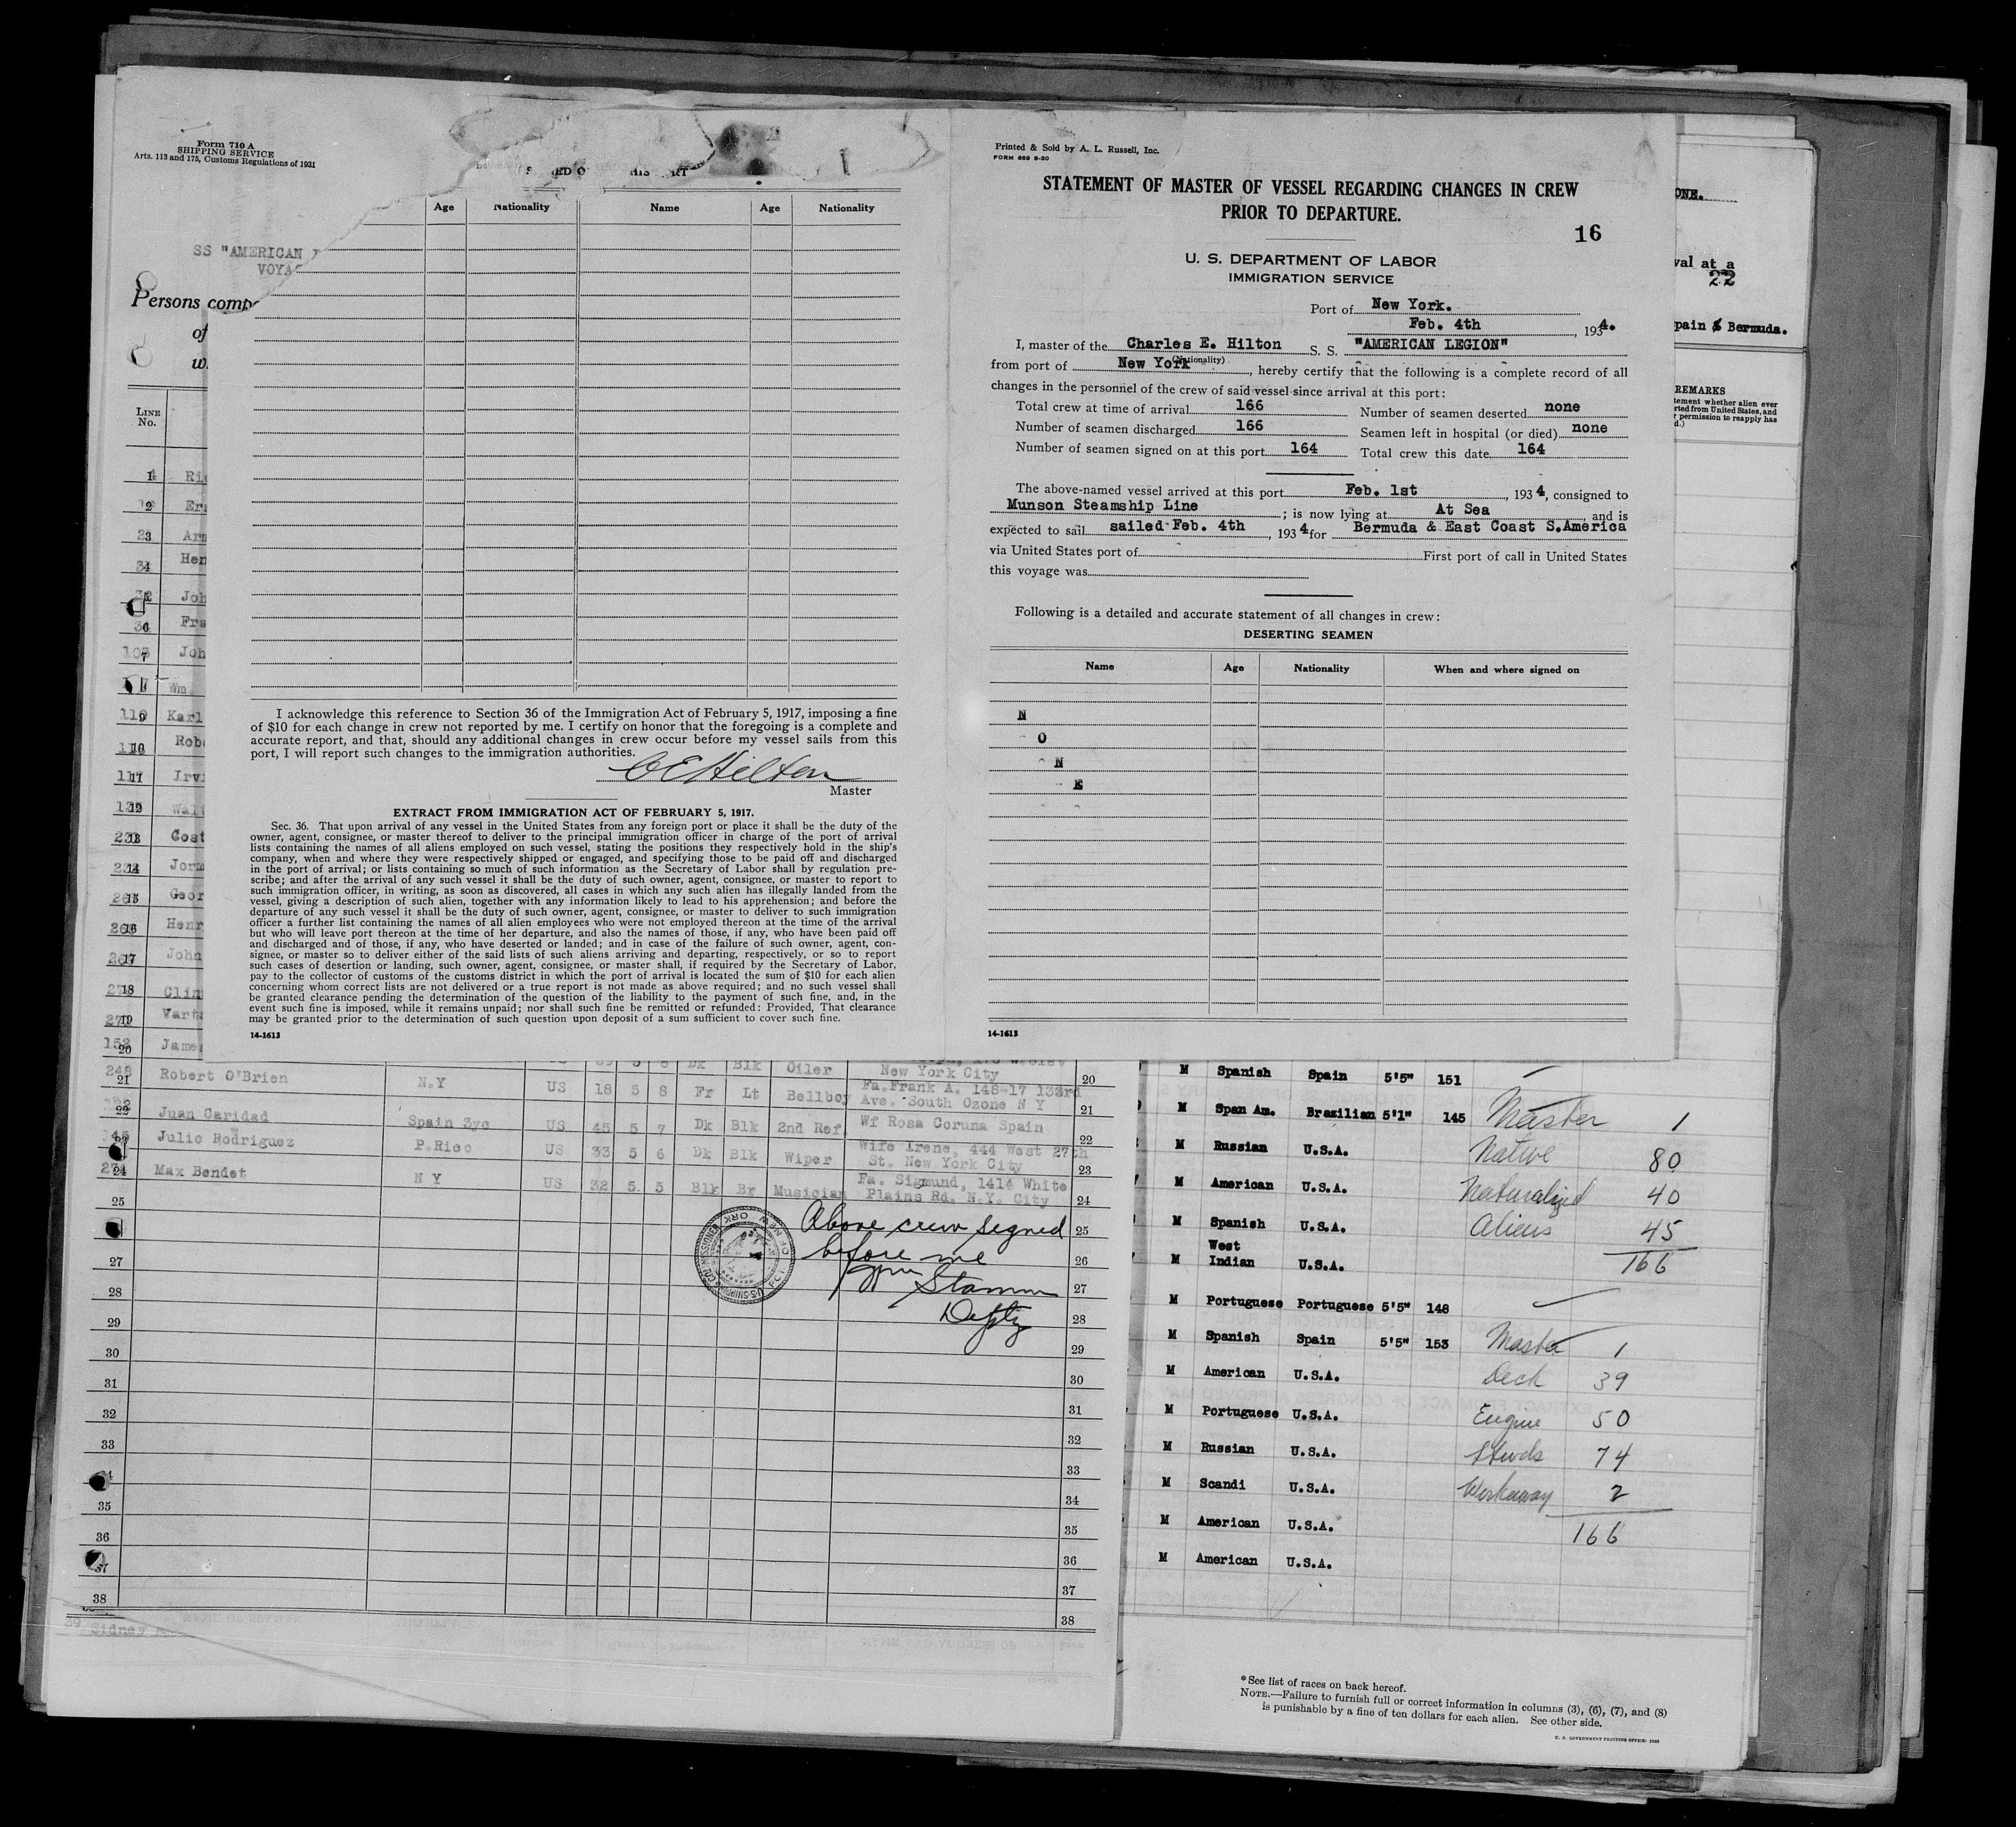 Form 710 A
SHIPPING SERVICE
Arts. 113 and 175, Customs Regulations of 1931
SS "AMERICAN
Persons
of
LINE
No.
Age Nationality Name Age Nationality
I acknowledge this reference to Section 36 of the Immigration Act of February 5, 1917, imposing a fine
of $10 for each change in crew not reported by me. I certify on honor that the foregoing is a complete and
accurate report, and that, should any additional changes in crew occur before my vessel sails from this
port, I will report such changes to the immigration authorities.
C E Hilton
Master
EXTRACT FROM IMMIGRATION ACT OF FEBRUARY 5, 1917.
Sec. 36. That upon arrival of any vessel in the United States from any foreign port or place it shall be the duty of the
owner, agent, consignee, or master thereof to deliver to the principal immigration officer in charge of the port of arrival
lists containing the names of all aliens employed on such vessel, stating the positions they respectively hold in the ship's
company, when and where they were respectively shipped or engaged, and specifying those to be paid off and discharged
in the port of arrival; or lists containing so much of such information as the Secretary of Labor shall by regulation pre-
scribe; and after the arrival of any such vessel it shall be the duty of such owner, agent, consignee, or master to report to
such immigration officer, in writing, as soon as discovered, all cases in which any such alien has illegally landed from the
vessel, giving a description of such alien, together with any information likely to lead to his apprehension; and before the
departure of any such vessel it shall be the duty of such owner, agent, consignee, or master to deliver to such immigration
officer a further list containing the names of all alien employees who were not employed thereon at the time of the arrival
but who will leave port thereon at the time of her departure, and also the names of those, if any, who have been paid off
and discharged and of those, if any, who have deserted or landed; and in case of the failure of such owner, agent, con-
signee, or master so to deliver either of the said lists of such aliens arriving and departing, respectively, or so to report
such cases of desertion or landing, such owner, agent, consignee, or master shall, if required by the Secretary of Labor,
pay to the collector of customs of the customs district in which the port of arrival is located the sum of $10 for each alien
concerning whom correct lists are not delivered or a true report is not made as above required; and no such vessel shall
be granted clearance pending the determination of the question of the liability to the payment of such fine, and, in the
event such fine is imposed, while it remains unpaid; nor shall such fine be remitted or refunded: Provided, That clearance
may be granted prior to the determination of such question upon deposit of a sum sufficient to cover such fine.
14-1613
Printed & Sold by A. L. Russell, Inc.
FORM 689 6-30
STATEMENT OF MASTER OF VESSEL REGARDING CHANGES IN CREW
PRIOR TO DEPARTURE.
16
U. S. DEPARTMENT OF LABOR
IMMIGRATION SERVICE
Port of New York.
Feb. 4th, 1934.
I, master of the Charles E. Hilton S. S. "AMERICAN LEGION"
(Nationality)
from port of New York, hereby certify that the following is a complete record of all
changes in the personnel of the crew of said vessel since arrival at this port:
Total crew at time of arrival 166 Number of seamen deserted none
Number of seamen discharged 166 Seamen left in hospital (or died) none
Number of seamen signed on at this port 164 Total crew this date 164
The above-named vessel arrived at this port Feb. 1st, 1934, consigned to
Munson Steamship Line; is now lying at At Sea and is
expected to sail sailed Feb. 4th, 1934 for Bermuda & East Coast S.America
via United States port of First port of call in United States
this voyage was
Following is a detailed and accurate statement of all changes in crew:
DESERTING SEAMEN
Name Age Nationality When and where signed on
N
O
N
E
14-1613
val at a
22
Bermuda.
REMARKS
Oiler New York City 20
21 Robert O'Brien N.Y US 18 5 8 Fr Lt Bellboy Fa.Frank A. 148-17 133rd
Ave. South Ozone N Y 21
22 Juan Caridad Spain 3yc US 45 5 7 Dk Blk 2nd Ref Wf Rosa Coruna Spain 22
Julio Rodriguez P.Rico US 33 5 6 Dk Blk Wiper Wife Irene, 444 West 27th
St. New York City 23
24 Max Bendet N Y US 32 5 5 Blk Br Musician Fa. Sigmund, 1414 White
Plains Rd. N.Y. City 24
25 Above crew signed 25
before me 26
27 Wm Stamm 27
28 Depty 28
29 29
30 30
31 31
32 32
33 33
34
35 35
36 36
37 37
38 38
39 Sidney
M Spanish Spain 5'5" 151
M Span Am. Brazilian 5'1" 145 Master 1
M Russian U.S.A. Native 80
M American U.S.A. Naturalized 40
M Spanish U.S.A. Aliens 45
M West Indian U.S.A. 166
M Portuguese Portuguese 5'5" 148
M Spanish Spain 5'5" 153 Master 1
M American U.S.A. Deck 39
M Portuguese U.S.A. Engine 50
M Russian U.S.A. Stwds 74
M Scandi U.S.A. Workaway 2
M American U.S.A. 166
M American U.S.A.
*See list of races on back hereof.
NOTE.—Failure to furnish full or correct information in columns (3), (6), (7), and (8)
is punishable by a fine of ten dollars for each alien. See other side.